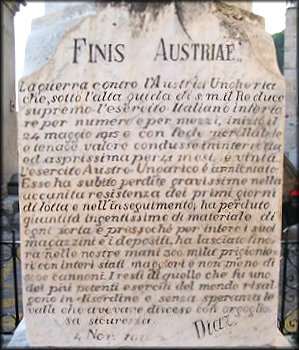 FINIS AUSTRIAE.
La guerra contro l'Austria Ungheria
che, sotto l'alta guida di s.m. il Re duce
supremo l'esercito Italiano inferio
re per numero e per mezzi, iniziò il
24 maggio 1915 e con fede incrollabile
e tenace valore condusse ininterrotta
ed asprissima per 41 mesi e vinta
L'esercito Austro-Ungarico è annientato
Esso ha subito perdite gravissime nella
accanita resistenza dei primi giorni
di lotta e nell'inseguimento, ha perduto
quantità ingentissime di materiale di
ogni sorta e pressoché per intero i suoi
magazzini e i depositi, ha lasciato fino
ra nelle nostre mani 300 mila prigionie
ri con interi stati maggiori e non meno di
5000 cannoni. I resti di quello che fu uno
dei più potenti eserciti del mondo risal
gono in disordine e senza speranza le
valli che avevano disceso con orgoglio
sa sicurezza.
4 Nov. Diaz